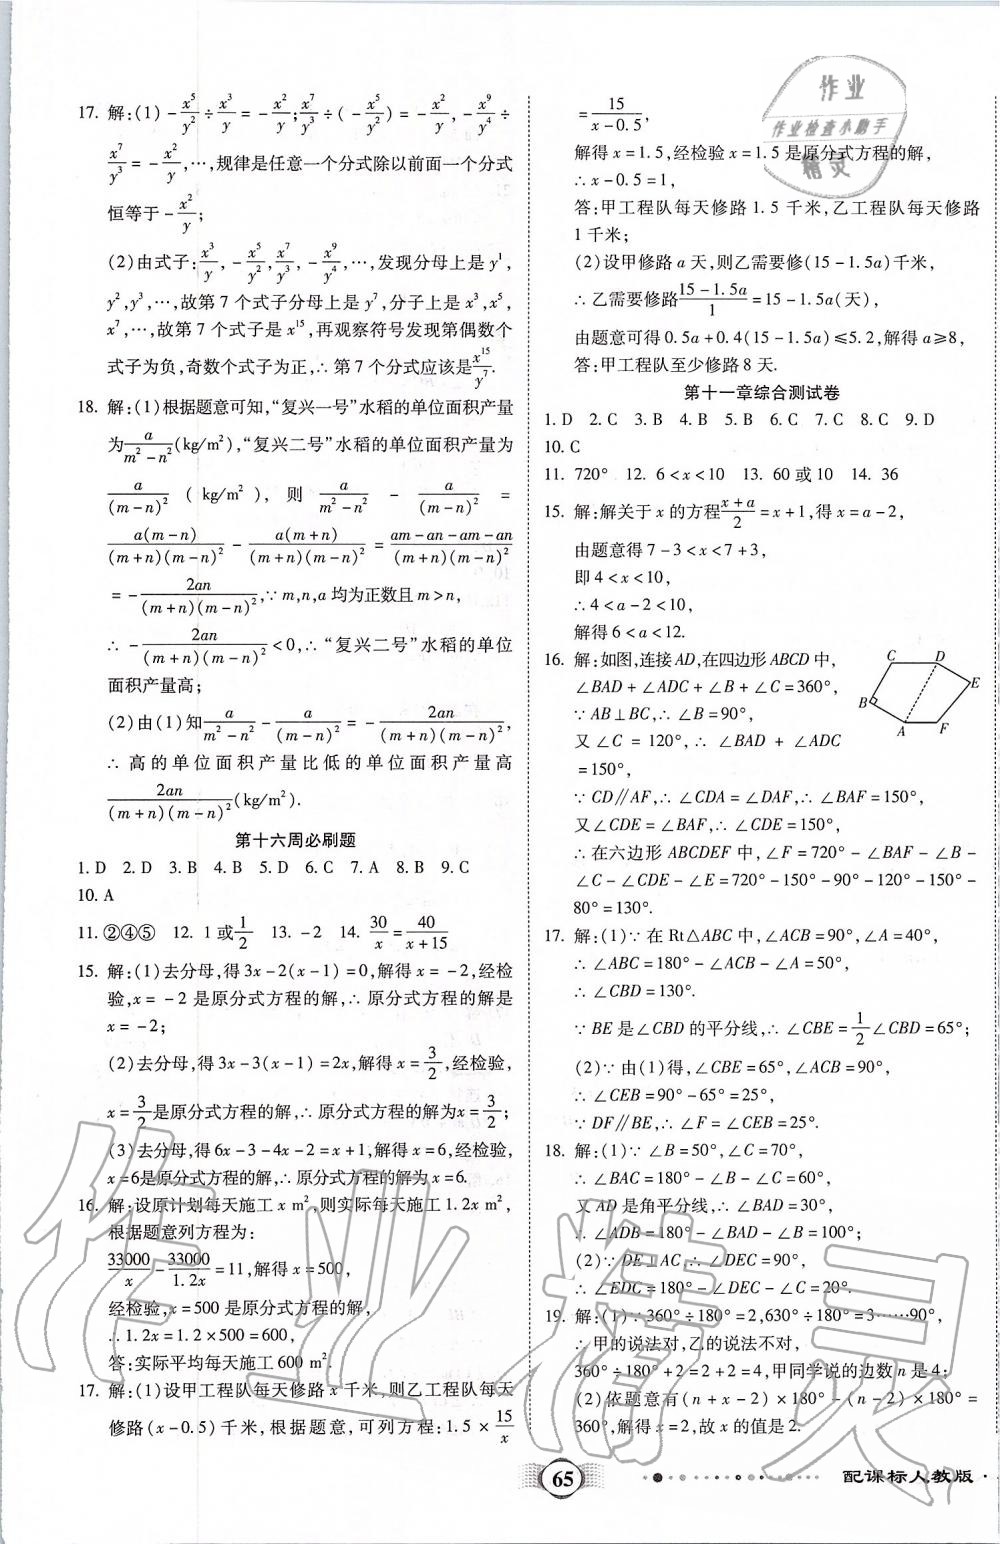 17. 解:(1) -x⁵/y² ÷ x³/y = -x²/y; x⁷/y³ ÷ (-x⁵/y²) = -x²/y, -x⁹/y⁴ ÷
x⁷/y³ = -x²/y,…,规律是任意一个分式除以前面一个分式
恒等于 -x²/y;
(2)由式子: x³/y, -x⁵/y², x⁷/y³, -x⁹/y⁴,…,发现分母上是 y¹,
y²,y³,…,故第 7 个式子分母上是 y⁷,分子上是 x³,x⁵,
x⁷,…,故第 7 个式子是 x¹⁵,再观察符号发现第偶数个
式子为负,奇数个式子为正,∴ 第 7 个分式应该是 x¹⁵/y⁷.
18. 解:(1)根据题意可知,“复兴一号”水稻的单位面积产量
为 a/(m²-n²) (kg/m²),“复兴二号”水稻的单位面积产量为
a/(m-n)² (kg/m²), 则 a/(m²-n²) - a/(m-n)² =
a(m-n)/(m+n)(m-n)² - a(m+n)/(m+n)(m-n)² = (am-an-am-an)/(m+n)(m-n)²
= -2an/(m+n)(m-n)²,∵ m,n,a 均为正数且 m>n,
∴ -2an/(m+n)(m-n)² <0,∴ “复兴二号”水稻的单位
面积产量高;
(2)由(1)知 a/(m²-n²) - a/(m-n)² = -2an/(m+n)(m-n)²,
∴ 高的单位面积产量比低的单位面积产量高
2an/(m+n)(m-n)² (kg/m²).
第十六周必刷题
1. D 2. D 3. B 4. B 5. D 6. C 7. A 8. B 9. C
10. A
11. ②④⑤ 12. 1 或 1/2 13. -2 14. 30/x = 40/(x+15)
15. 解:(1)去分母,得 3x-2(x-1)=0,解得 x=-2,经检
验,x=-2 是原分式方程的解,∴ 原分式方程的解是
x=-2;
(2)去分母,得 3x-3(x-1)=2x,解得 x=3/2,经检验,
x=3/2 是原分式方程的解,∴ 原分式方程的解为 x=3/2;
(3)去分母,得 6x-3-4x-2=x+1,解得 x=6,经检验,
x=6是原分式方程的解,∴ 原分式方程的解为 x=6.
16. 解:设原计划每天施工 x m²,则实际每天施工 1.2x m²,
根据题意列方程为:
33000/x - 33000/1.2x = 11,解得 x=500,
经检验,x=500 是原分式方程的解,
∴1.2x=1.2×500=600,
答:实际平均每天施工 600 m².
17. 解:(1)设甲工程队每天修路 x 千米,则乙工程队每天
修路(x-0.5)千米,根据题意,可列方程:1.5×15/x
=15/(x-0.5),
解得 x=1.5,经检验 x=1.5 是原分式方程的解,
∴x-0.5=1,
答:甲工程队每天修路 1.5 千米,乙工程队每天修路
1 千米;
(2)设甲修路 a 天,则乙需要修(15-1.5a)千米,
∴ 乙需要修路 (15-1.5a)/1 = 15-1.5a(天),
由题意可得 0.5a+0.4(15-1.5a)≤5.2,解得 a≥8,
答:甲工程队至少修路 8 天.
第十一章综合测试卷
1. D 2. C 3. B 4. B 5. B 6. C 7. C 8. C 9. D
10. C
11. 720° 12. 6<x<10 13. 60 或 10 14. 36
15. 解:解关于 x 的方程 (x+a)/2 = x+1,得 x=a-2,
由题意得 7-3<x<7+3,
即 4<x<10,
∴4<a-2<10,
解得 6<a<12.
16. 解:如图,连接 AD,在四边形 ABCD 中,
∠BAD+∠ADC+∠B+∠C=360°,
∵ AB⊥BC,∴ ∠B=90°,
又 ∠C = 120°,∴ ∠BAD + ∠ADC
=150°,
∵ CD∥AF,∴ ∠CDA=∠DAF,∴ ∠BAF=150°,
又∠CDE=∠BAF,∴ ∠CDE=150°,
∴ 在六边形 ABCDEF 中,∠F=720°-∠BAF-∠B-
∠C-∠CDE-∠E=720°-150°-90°-120°-150°-
80°=130°.
C D
E
B
A F
17. 解:(1)∵ 在 Rt△ABC 中,∠ACB=90°,∠A=40°,
∴ ∠ABC=180°-∠A=50°,
∴ ∠CBD=130°.
∵ BE 是∠CBD 的平分线,∴ ∠CBE=1/2∠CBD=65°;
(2)∵ 由(1)得,∠CBE=65°,∠ACB=90°,
∴ ∠CEB=90°-65°=25°,
∵ DF∥BE,∴ ∠F=∠CEB=25°.
18. 解:(1)∵ ∠B=50°,∠C=70°,
∴ ∠BAC=180°-∠B-∠C=60°,
又 AD 是角平分线,∴ ∠BAD=30°,
∴ ∠ADB=180°-∠BAD-∠B=100°;
(2)∵ DE⊥AC,∴ ∠DEC=90°,
∴ ∠EDC=180°-∠DEC-∠C=20°.
19. 解:(1)∵360°÷180°=2,630°÷180°=3……90°,
∴ 甲的说法对,乙的说法不对,
360°÷180°+2=2+2=4,甲同学说的边数 n 是 4;
(2)依题意有(n+x-2)×180°-(n-2)×180°=
360°,解得 x=2,故 x 的值是 2.
65
配课标人教版·
作业
作业检查小助手
精灵
作业精灵